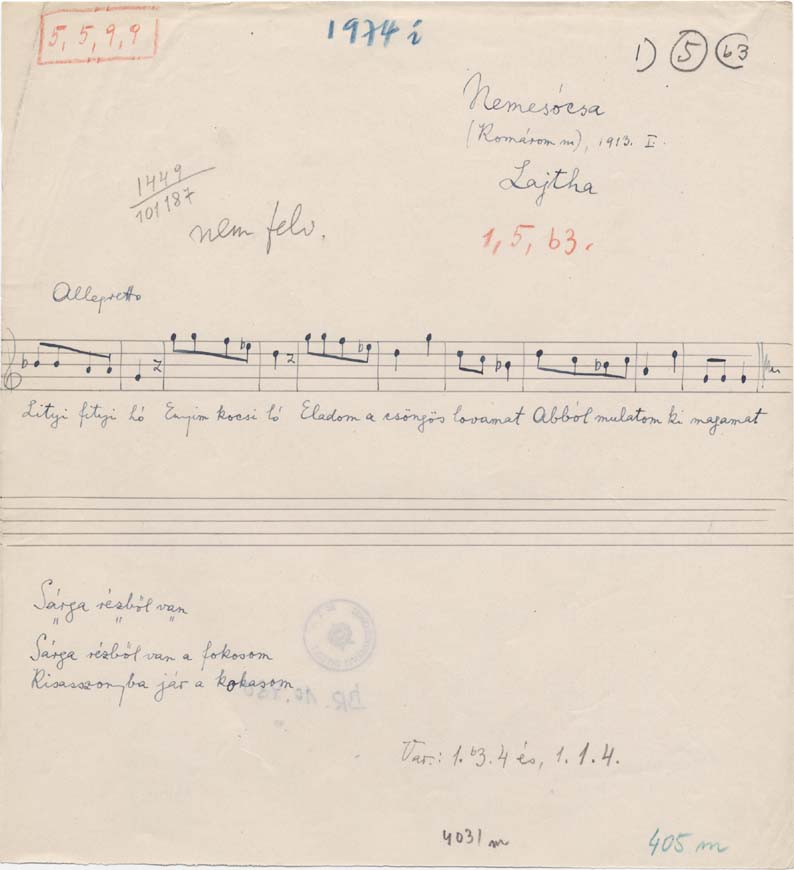 5, 5, 9, 9
1974 i
1) 5 b3
Nemesócsa
(Komárom m), 1913. I.
Lajtha
1449
101187
nem felv.
1, 5, b3.
Allegretto
Lityi fityi hó Enyim kocsi ló Eladom a csöngös lovamat Abból mulatom ki magamat
Sárga rézből van
" " "
Sárga rézből van a fokosom
Kisasszonyba jár a kokasom
Var.: 1. b3. 4 és, 1. 1. 4.
4031 m
405 m